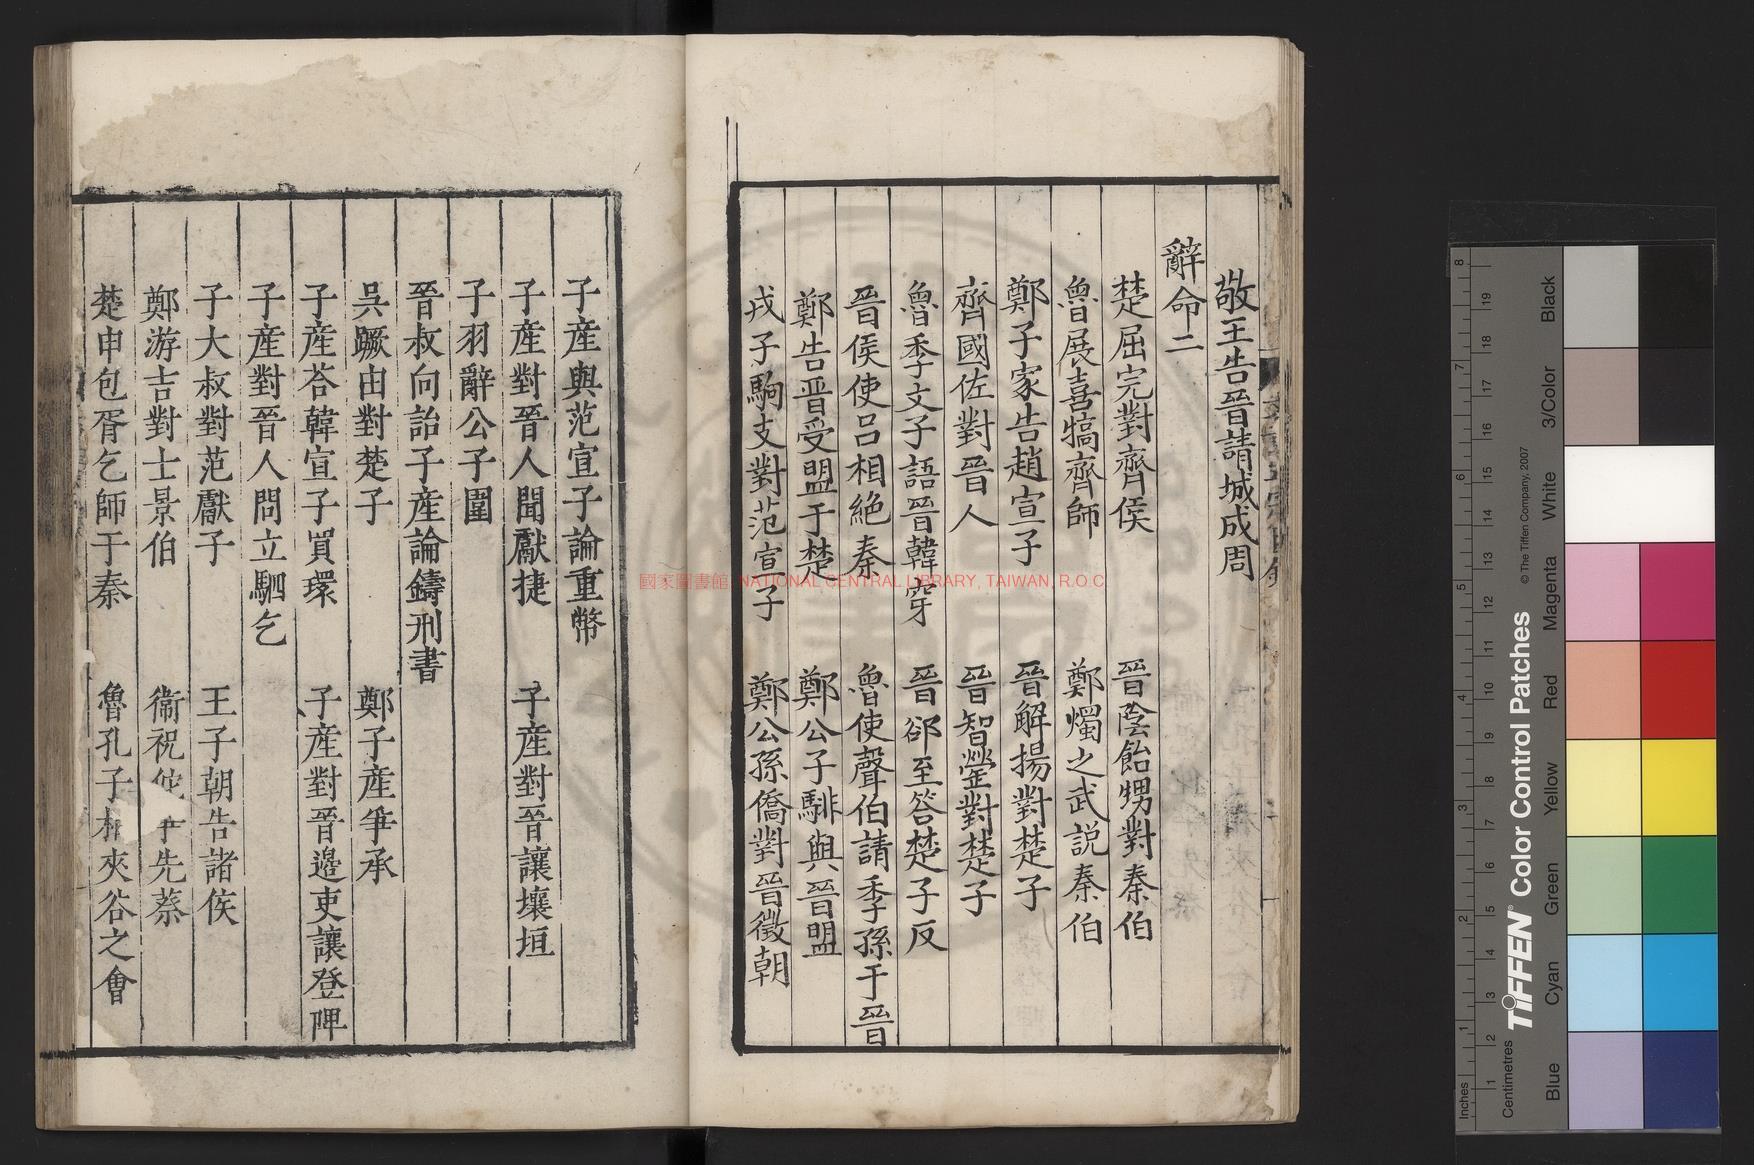 敬王告晉請城成周
辭命二
楚屈完對齊侯　晉陰飴甥對秦伯
魯展喜犒齊師　鄭燭之武說秦伯
鄭子家告趙宣子　晉解揚對楚子
齊國佐對晉人　晉智罃對楚子
魯季文子語晉韓穿　晉郤至答楚子反
晉侯使呂相絕秦　魯使聲伯請季孫于晉
鄭告晉受盟于楚　鄭公子騑與晉盟
戎子駒支對范宣子　鄭公孫僑對晉徵朝
子產與范宣子論重幣
子產對晉人問獻捷　子產對晉讓壞垣
子羽辭公子圍
晉叔向詒子產論鑄刑書
吳蹶由對楚子　鄭子產爭承
子產荅韓宣子買環　子產對晉邊吏讓登陴
子產對晉人問立駟乞
子大叔對范獻子　王子朝告諸侯
鄭游吉對士景伯　衞祝佗爭先蔡
楚申包胥乞師于秦　魯孔子相夾谷之會
國家圖書館 NATIONAL CENTRAL LIBRARY, TAIWAN, R.O.C
Inches
Centimetres
TIFFEN® Color Control Patches
© The Tiffen Company, 2007
Blue
Cyan
Green
Yellow
Red
Magenta
White
3/Color
Black